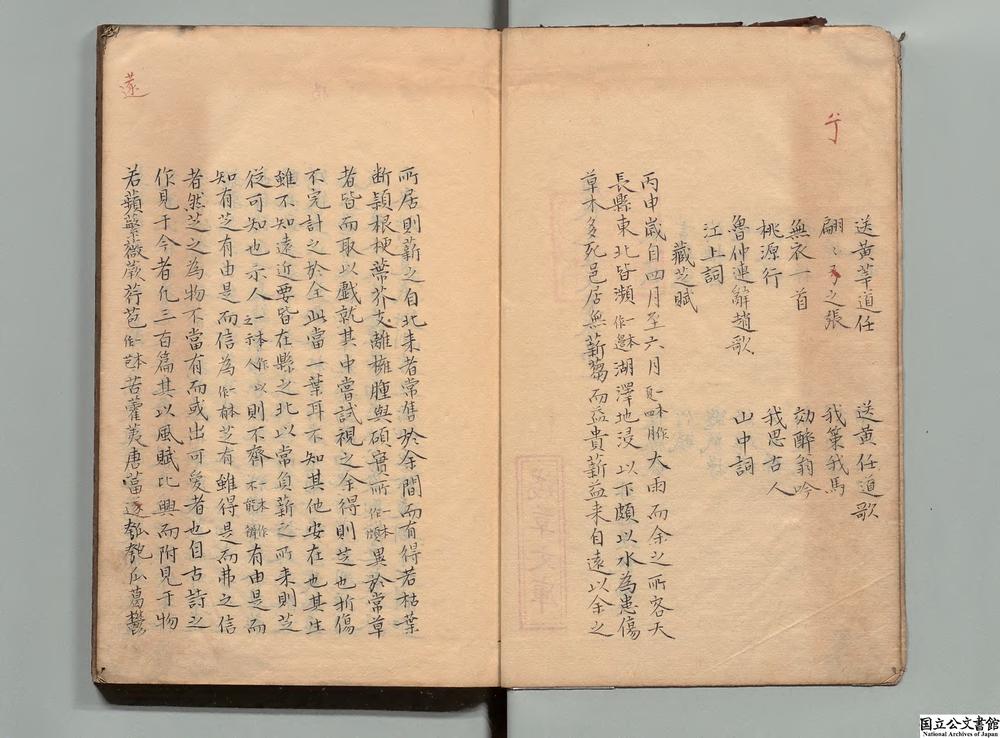 亍
送黃莘道任 送黃任道歌
翩〻之張 我策我馬
無衣一首 効醉翁吟
桃源行 我思古人
魯仲連辭趙歌 山中詞
江上詞
藏芝賦
丙申歲自四月至六月大雨而余之所客天
長縣東北皆瀕一本作邊湖澤地浸以下頗以水為患傷
草木多死邑居無薪蒭而益貴薪益来自遠以余之
所居則薪之自北来者常售於余間而有得若枯葉
断穎根梗葉芥支離擁腫與碩實所一本作頒異於常草
者皆而取以戯就其中嘗試視之余得則芝也折傷
不完計之於全此當一葉耳不知其他安在也其生
雖不知遠近要皆在縣之北以常負薪之所来則芝
從可知也示人一本作之人以則不齊一本作不能辨有由是而
知有芝有由是而信為一本作無芝有雖得是而弗之信
者然芝之為物不當有而或出可愛者也自古詩之
作見于今者凡三百篇其以風賦比興而附見于物
若蘋蘩薇蕨荇芑一本作芭苦藿荑唐葍蓫瓠匏瓜葛虆
蓫
国立公文書館
National Archives of Japan